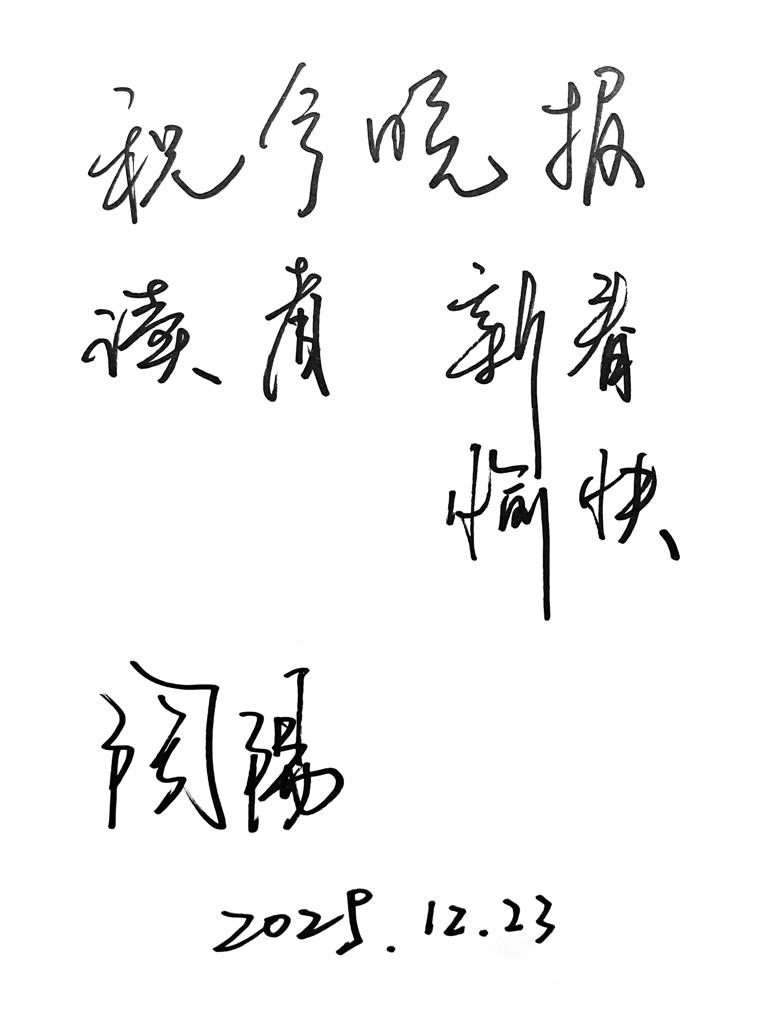 祝今晚报
读者 新春
愉快
陶陽
2025.12.23